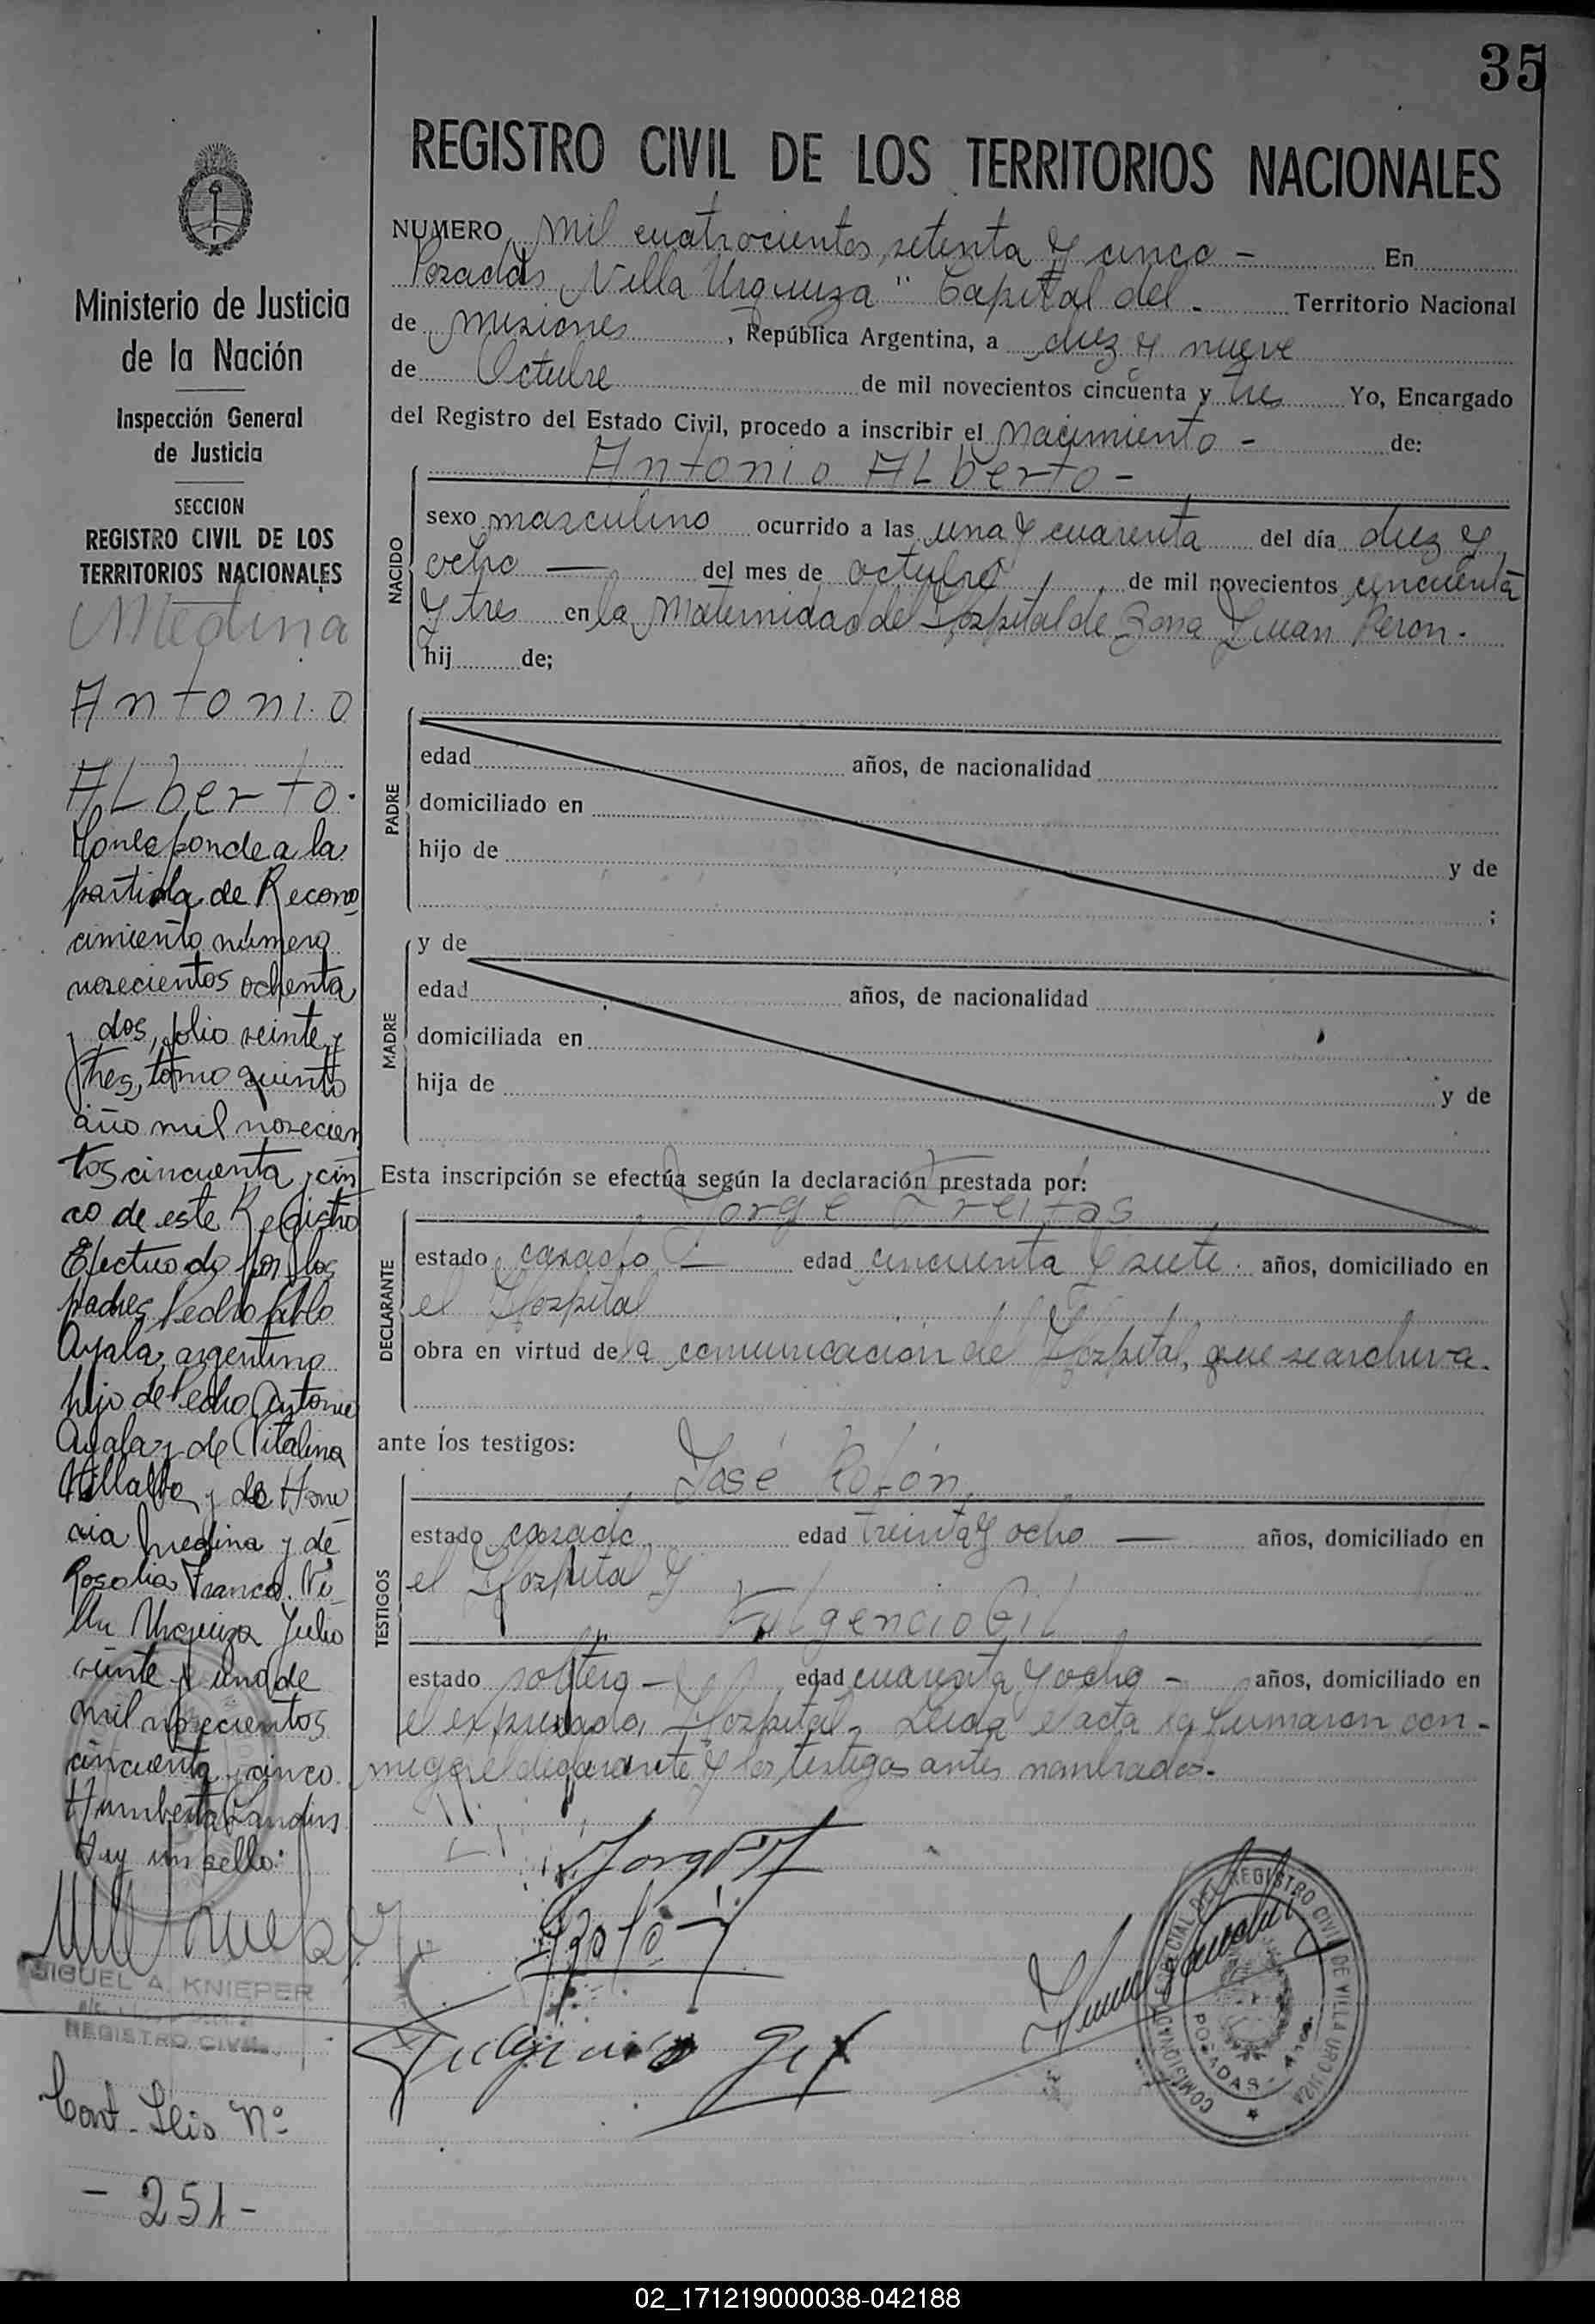 35
REGISTRO CIVIL DE LOS TERRITORIOS NACIONALES
NUMERO mil cuatrocientos setenta y cinco - En
Posadas "Villa Urquiza" Capital del - Territorio Nacional
de misiones, República Argentina, a diez y nueve
de Octubre de mil novecientos cincuenta y tres Yo, Encargado
del Registro del Estado Civil, procedo a inscribir el nacimiento - de:
Antonio ALberto -
NACIDO
sexo masculino ocurrido a las una y cuarenta del día diez y
ocho — del mes de octubre, de mil novecientos cincuenta
y tres en la Maternidad del Hospital de Zona Juan Peron.
hij de;
PADRE
edad años, de nacionalidad
domiciliado en
hijo de y de
;
MADRE
y de
edad años, de nacionalidad
domiciliada en
hija de y de
Esta inscripción se efectúa según la declaración prestada por:
Jorge Freitas
DECLARANTE
estado casado — edad cincuenta y siete. años, domiciliado en
el Hospital
obra en virtud de la comunicación del Hospital, que se archiva.
ante los testigos:
José Rolón
TESTIGOS
estado casado edad treinta y ocho — años, domiciliado en
el Hospital y
Fulgencio Gil
estado soltero - edad cuarenta y ocho - años, domiciliado en
el expresado Hospital. Leida el acta la firmaron con-
migo el declarante y los testigos antes nombrados.-
Fulgencio Gil
COMISIONADO ESPECIAL DEL REGISTRO CIVIL DE VILLA URQUIZA
POSADAS
Ministerio de Justicia
de la Nación
Inspección General
de Justicia
SECCION
REGISTRO CIVIL DE LOS
TERRITORIOS NACIONALES
Medina
Antonio
ALberto.
Corresponde a la
partida de Recono-
cimiento número
novecientos ochenta
y dos, folio veinte y
tres, tomo quinto
año mil novecien
tos cincuenta y cin
co de este Registro
Efectuado por los
padres Pedro Pablo
Ayala, argentino
hijo de Pedro Antonio
Ayala y de Vitalina
Villalba y de Hono
ria Medina y de
Rosalia Franco. Vi-
lla Urquiza Julio
veinte y uno de
mil novecientos
cincuenta y cinco.
Humberto
Hay un sello.
MIGUEL A. KNIEPER
REGISTRO CIVIL
Cont. Nº
- 251 -
02_171219000038-042188